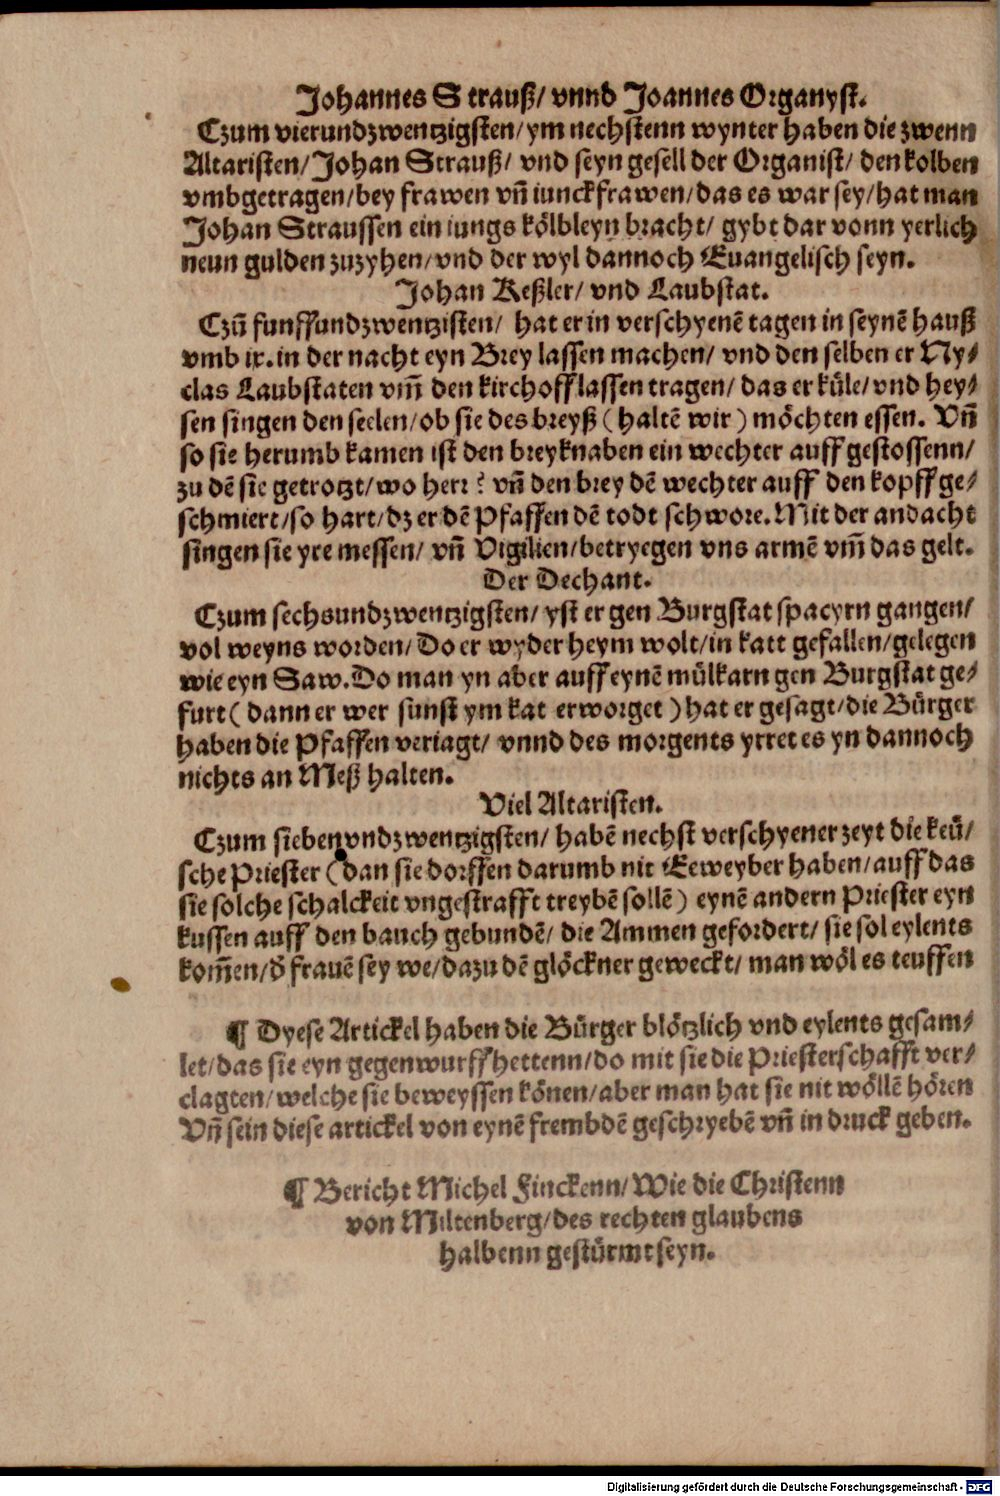 Johannes Strauß/ vnnd Joannes Organyst.
Czum vierundzwentzigsten/ ym nechstenn wynter haben die zwenn
Altaristen/ Johan Strauß/ vnd seyn gesell der Organist/ den kolben
vmbgetragen/ bey frawen vñ iunckfrawen/ das es war sey/ hat man
Johan Straussen ein iungs kölbleyn bracht/ gybt dar vonn yerlich
neun gulden zuzyhen/ vnd der wyl dannoch Euangelisch seyn.
Johan Keßler/ vnd Laubstat.
Czũ funffundzwentzisten/ hat er in verschyenẽ tagen in seynẽ hauß
vmb ix. in der nacht eyn Brey lassen machen/ vnd den selben er Ny⸗
clas Laubstaten vm̃ den kirchoff lassen tragen/ das er küle/ vnd hey⸗
sen singen den seelen/ ob sie des breyß (haltẽ wir) möchten essen. Vñ
so sie herumb kamen ist den breyknaben ein wechter auff gestossenn/
zu dẽ sie getrotzt/ wo herr? vñ den brey dẽ wechter auff den kopff ge⸗
schmiert/ so hart/ dz er dẽ Pfaffen dẽ todt schwore. Mit der andacht
singen sie yre messen/ vñ Vigilien/ betryegen vns armẽ vm̃ das gelt.
Der Dechant.
Czum sechsundzwentzigsten/ yst er gen Burgstat spacyrn gangen/
vol weyns worden/ Do er wyder heym wolt/ in katt gefallen/ gelegen
wie eyn Saw. Do man yn aber auff eynẽ mülkarn gen Burgstat ge⸗
furt (dann er wer sunst ym kat erworget) hat er gesagt/ die Bürger
haben die Pfaffen veriagt/ vnnd des morgents yrret es yn dannoch
nichts an Meß halten.
Viel Altaristen.
Czum siebenvndzwentzigsten/ habẽ nechst verschyener zeyt die keü⸗
sche Priester (dan sie dorffen darumb nit Eeweyber haben/ auff das
sie solche schalckeit vngestrafft treybẽ sollẽ) eynẽ andern Priester eyn
kussen auff den bauch gebundẽ/ die Ammen gefordert/ sie sol eylents
kom̃en/ d̾ frauẽ sey we/ dazu dẽ glöckner geweckt/ man wöl es teuffen
¶ Dyese Artickel haben die Bürger blötzlich vnd eylents gesam⸗
let/ das sie eyn gegenwurff hettenn/ do mit sie die Priesterschafft ver⸗
clagten/ welche sie beweyssen könen/ aber man hat sie nit wöllẽ hören
Vñ sein diese artickel von eynẽ frembdẽ geschryebẽ vñ in druck geben.
¶ Bericht Michel Finckenn/ Wie die Christenn
von Miltenberg/ des rechten glaubens
halbenn gestürmt seyn.
Digitalisierung gefördert durch die Deutsche Forschungsgemeinschaft - DFG